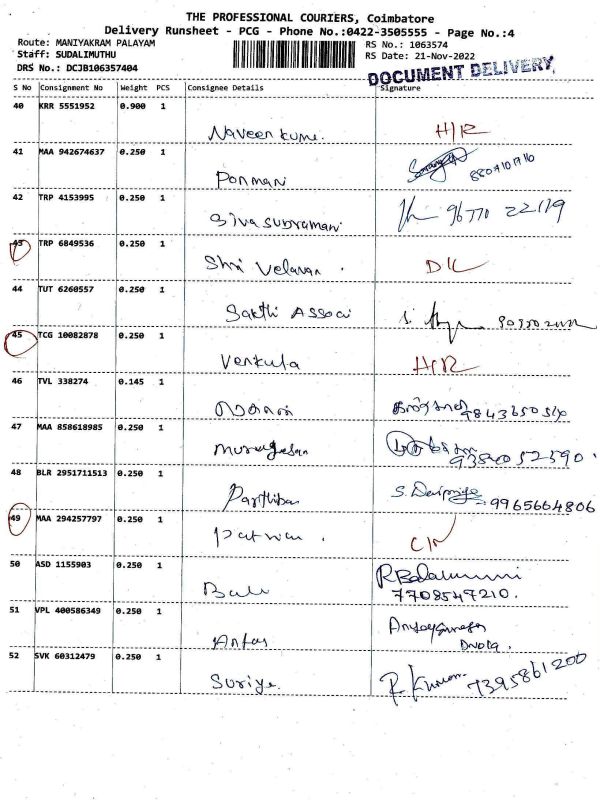 THE PROFESSIONAL COURIERS, Coimbatore
Delivery Runsheet - PCG - Phone No.:0422-3505555 - Page No.:4
Route: MANIYAKRAM PALAYAM
RS No.: 1063574
Staff: SUDALIMUTHU
RS Date: 21-Nov-2022
DRS No.: DCJB106357404
DOCUMENT DELIVERY
S No Consignment No Weight PCS Consignee Details Signature
40 KRR 5551952 0.900 1
Naveen kume. H/R
41 MAA 942674637 0.250 1
Ponmani
42 TRP 4153995 0.250 1
Siva Subramani 96770 22119
43 TRP 6849536 0.250 1
Shri Velavan . D/L
44 TUT 6260557 0.250 1
Sakthi Associ
45 TCG 10082878 0.250 1
Venkula H/R
46 TVL 338274 0.145 1
47 MAA 858618985 0.250 1
Murugesan
48 BLR 2951711513 0.250 1
Parthiban 9965664806
49 MAA 294257797 0.250 1
50 ASD 1155903 0.250 1
Balu
7708547210.
51 VPL 400586349 0.250 1
52 SVK 60312479 0.250 1
Suriya R Kumar 7395861200